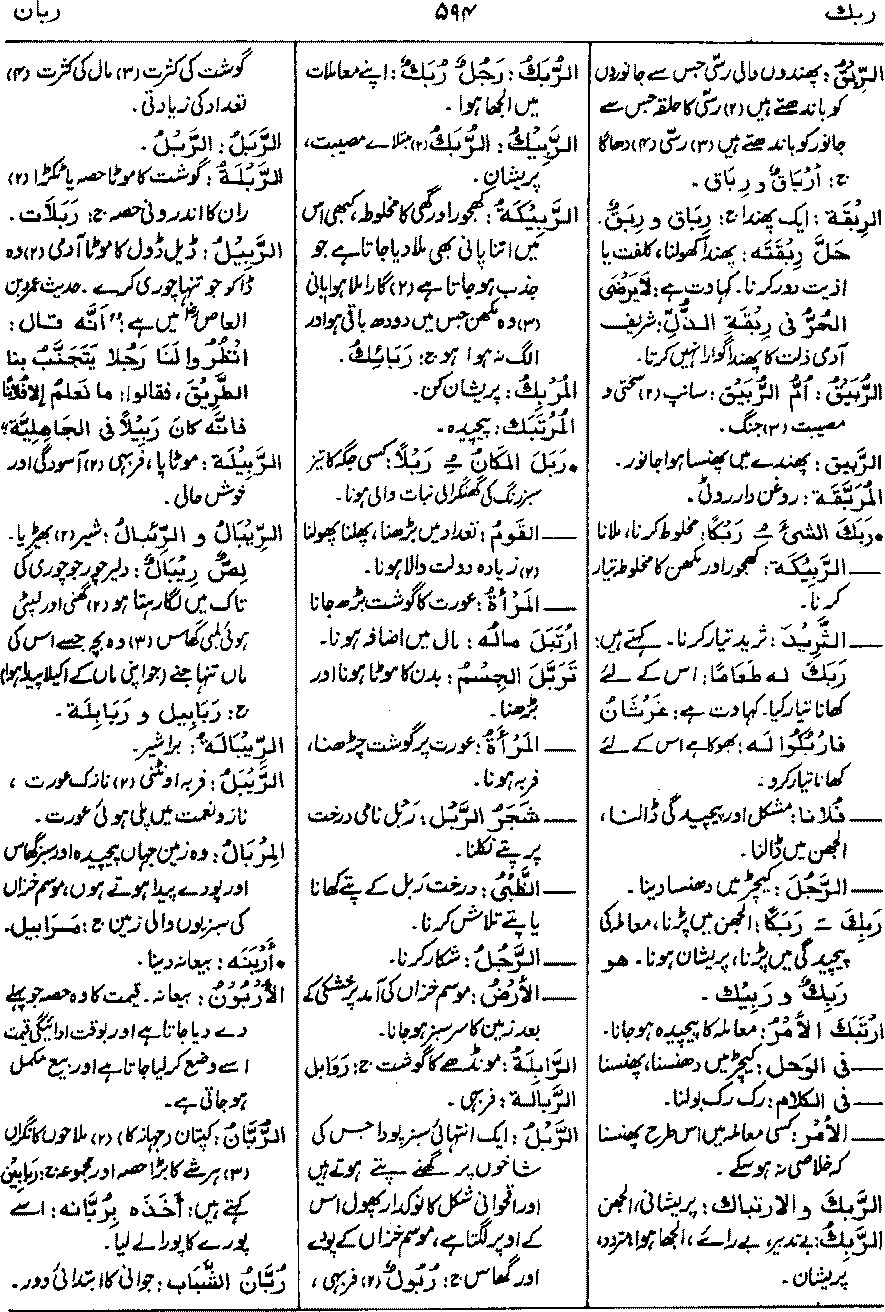 ربك ۵۹۴ ربان
الرِّبْقُ: پھندوں والی رسّی جس سے جانوروں
کو باندھتے ہیں (۲) رسّی کا حلقہ جس سے
جانور کو باندھتے ہیں (۳) رسّی (۴) دھاگا
ج: أَرْبَاق و رِبَاق۔
الرِبْقَة: ایک پھندا ج: رِبَاق و رِبَقٌ۔
حَلَّ رِبْقَتَه: پھندا کھولنا، کلفت یا
اذیت دور کرنا۔ کہاوت ہے: لَایَرْضَی
الحُرُّ فی رِبْقَةِ الذُّلِّ: شریف
آدمی ذلت کا پھندا گوارا نہیں کرتا۔
الرُّبَيْقُ: أُمُّ الرُّبَيْقِ: سانپ (۲) سختی و
مصیبت (۳) جنگ۔
الرَّبِيق: پھندے میں پھنسا ہوا جانور۔
المُرَبَّقَة: روغن دار روٹی۔
•رَبَكَ الشئَ ـُ رَبْكًا: مخلوط کرنا، ملانا
— الرَّبِيْكَة: کھجور اور مکھن کا مخلوط تیار
کرنا۔
— الثَّرِيْدَ: ثرید تیار کرنا۔ کہتے ہیں:
رَبَكَ له طَعَامًا: اس کے لئے
کھانا تیار کیا۔ کہاوت ہے: غَرْثَانُ
فَارْبُكُوا لَه: بھوکا ہے اس کے لئے
کھانا تیار کرو۔
— فُلَانًا: مشکل اور پیچیدگی ڈالنا،
الجھن میں ڈالنا۔
— الرَّجُلَ: کیچڑ میں دھنسا دینا۔
رَبِكَ ـَ رَبَكًا: الجھن میں پڑنا، معاملہ کی
پیچیدگی میں پڑنا، پریشان ہونا۔ هو
رَبِكٌ و رَبِيْك۔
ارْتَبَكَ الأَمْرُ: معاملہ کا پیچیدہ ہو جانا۔
— فی الوَحل: کیچڑ میں دھنسنا، پھنسنا
— فی الکلام: رک رک بولنا۔
— الأَمْرُ: کسی معاملہ میں اس طرح پھنسنا
کہ خلاصی نہ ہو سکے۔
الرَّبْكُ والارتباك: پریشانی، الجھن
الرَّبِكُ: بے تدبیر، بے رائے، الجھا ہوا، متردد،
پریشان۔
الرُّبَكُ: رَجُلٌ رُبَكٌ: اپنے معاملات
میں الجھا ہوا۔
الرَّبِيْكُ: الرُّبَكُ (۲) مبتلائے مصیبت،
پریشان۔
الرَّبِيْكَة: کھجور اور گھی کا مخلوط، کبھی اس
میں اتنا پانی بھی ملا دیا جاتا ہے جو
جذب ہو جاتا ہے (۲) گارا ملا ہوا پانی
(۳) وہ مکھن جس میں دودھ باقی ہو اور
الگ نہ ہوا ہو ج: رَبَائِكُ۔
المُرْبِك: پریشان کن۔
المُرْتَبِك: پیچیدہ۔
•رَبَلَ المَكَانُ ـُ رَبْلًا: کسی جگہ کا تیز
سبز رنگ کی گھنگرالی نبات والی ہونا۔
— القَومُ: تعداد میں بڑھنا، پھلنا پھولنا
(۲) زیادہ دولت والا ہونا۔
— المَرْأَةُ: عورت کا گوشت بڑھ جانا
ارْتَبَلَ مالُه: مال میں اضافہ ہونا۔
تَرَبَّلَ الجِسْمُ: بدن کا موٹا ہونا اور
بڑھنا۔
— المَرْأَةُ: عورت پر گوشت چڑھنا،
فربہ ہونا۔
— شَجَرُ الرَّبْلِ: ربل نامی درخت
پر پتے نکلنا۔
— الظَّبْیُ: درخت ربل کے پتے کھانا
یا پتے تلاش کرنا۔
— الرَّجُلُ: شکار کرنا۔
— الأَرْضُ: موسم خزاں کی آمد پر خشکی کے
بعد زمین کا سرسبز ہو جانا۔
الرَّابِلَةُ: مونڈھے کا گوشت ج: رَوَابل
الرَّبَالة: فربہی۔
الرَّبْلُ: ایک انتہائی سبز پودا جس کی
شاخوں پر گھنے پتے ہوتے ہیں
اور اقحوانی شکل کا نوکدار پھول اس
کے اوپر لگتا ہے، موسم خزاں کے پودے
اور گھاس ج: رُبُولٌ (۲) فربہی،
گوشت کی کثرت (۳) مال کی کثرت (۴)
تعداد کی زیادتی۔
الرَّبَلُ: الرَّبْلُ۔
الرَّبْلَةُ: گوشت کا موٹا حصہ یا ٹکڑا (۲)
ران کا اندرونی حصہ ج: رَبَلَات۔
الرَّبِيْلُ: ڈیل ڈول کا موٹا آدمی (۲) وہ
ڈاکو جو تنہا چوری کرے۔ حدیث عمرو بن
العاصؓ میں ہے: "أَنَّه قال:
انْظُرُوا لَنَا رَجُلًا يَتَجَنَّبُ بنا
الطَّرِيْقَ، فقالوا: ما نَعلمُ إلا فُلَانًا
فَانّه كانَ رَبِيْلًا فی الجَاهِلِيَّةِ"
الرَّبِيْلَة: موٹاپا، فربہی (۲) آسودگی اور
خوش حالی۔
الرِّيْبَالُ و الرِّئبالُ: شیر (۲) بھیڑیا۔
لِصٌّ رِيْبَالٌ: دلیر چور جو چوری کی
تاک میں لگا رہتا ہو (۲) گھنی اور لپٹی
ہوئی لمبی گھاس (۳) وہ بچہ جسے اس کی
ماں تنہا جنے (جو اپنی ماں کے اکیلا پیدا ہوا)
ج: رَيَابِيل و رَيَابِلَة۔
الرِّيْبَالَةُ: برا شیر۔
الرَّيْبَلُ: فربہ اونٹنی (۲) نازک عورت،
ناز و نعمت میں پلی ہوئی عورت۔
المِرْبَالُ: وہ زمین جہاں پیچیدہ اور سبز گھاس
اور پودے پیدا ہوتے ہوں، موسم خزاں
کی سبزیوں والی زمین ج: مَرَابِيل۔
•أَرْبَنَه: بیعانہ دینا۔
الأُرْبُوْنُ: بیعانہ۔ قیمت کا وہ حصہ جو پہلے
دے دیا جاتا ہے اور بوقت ادائیگی قیمت
اسے وضع کر لیا جاتا ہے اور بیع مکمل
ہو جاتی ہے۔
الرُّبَّانُ: کپتان (جہاز کا) (۲) ملاحوں کا نگراں
(۳) ہر شے کا بڑا حصہ اور مجموعہ ج: رَبَابِيْنُ
کہتے ہیں: أَخَذَه بِرُبَّانِه: اسے
پورے کا پورا لے لیا۔
رُبَّانُ الشَّباب: جوانی کا ابتدائی دور۔